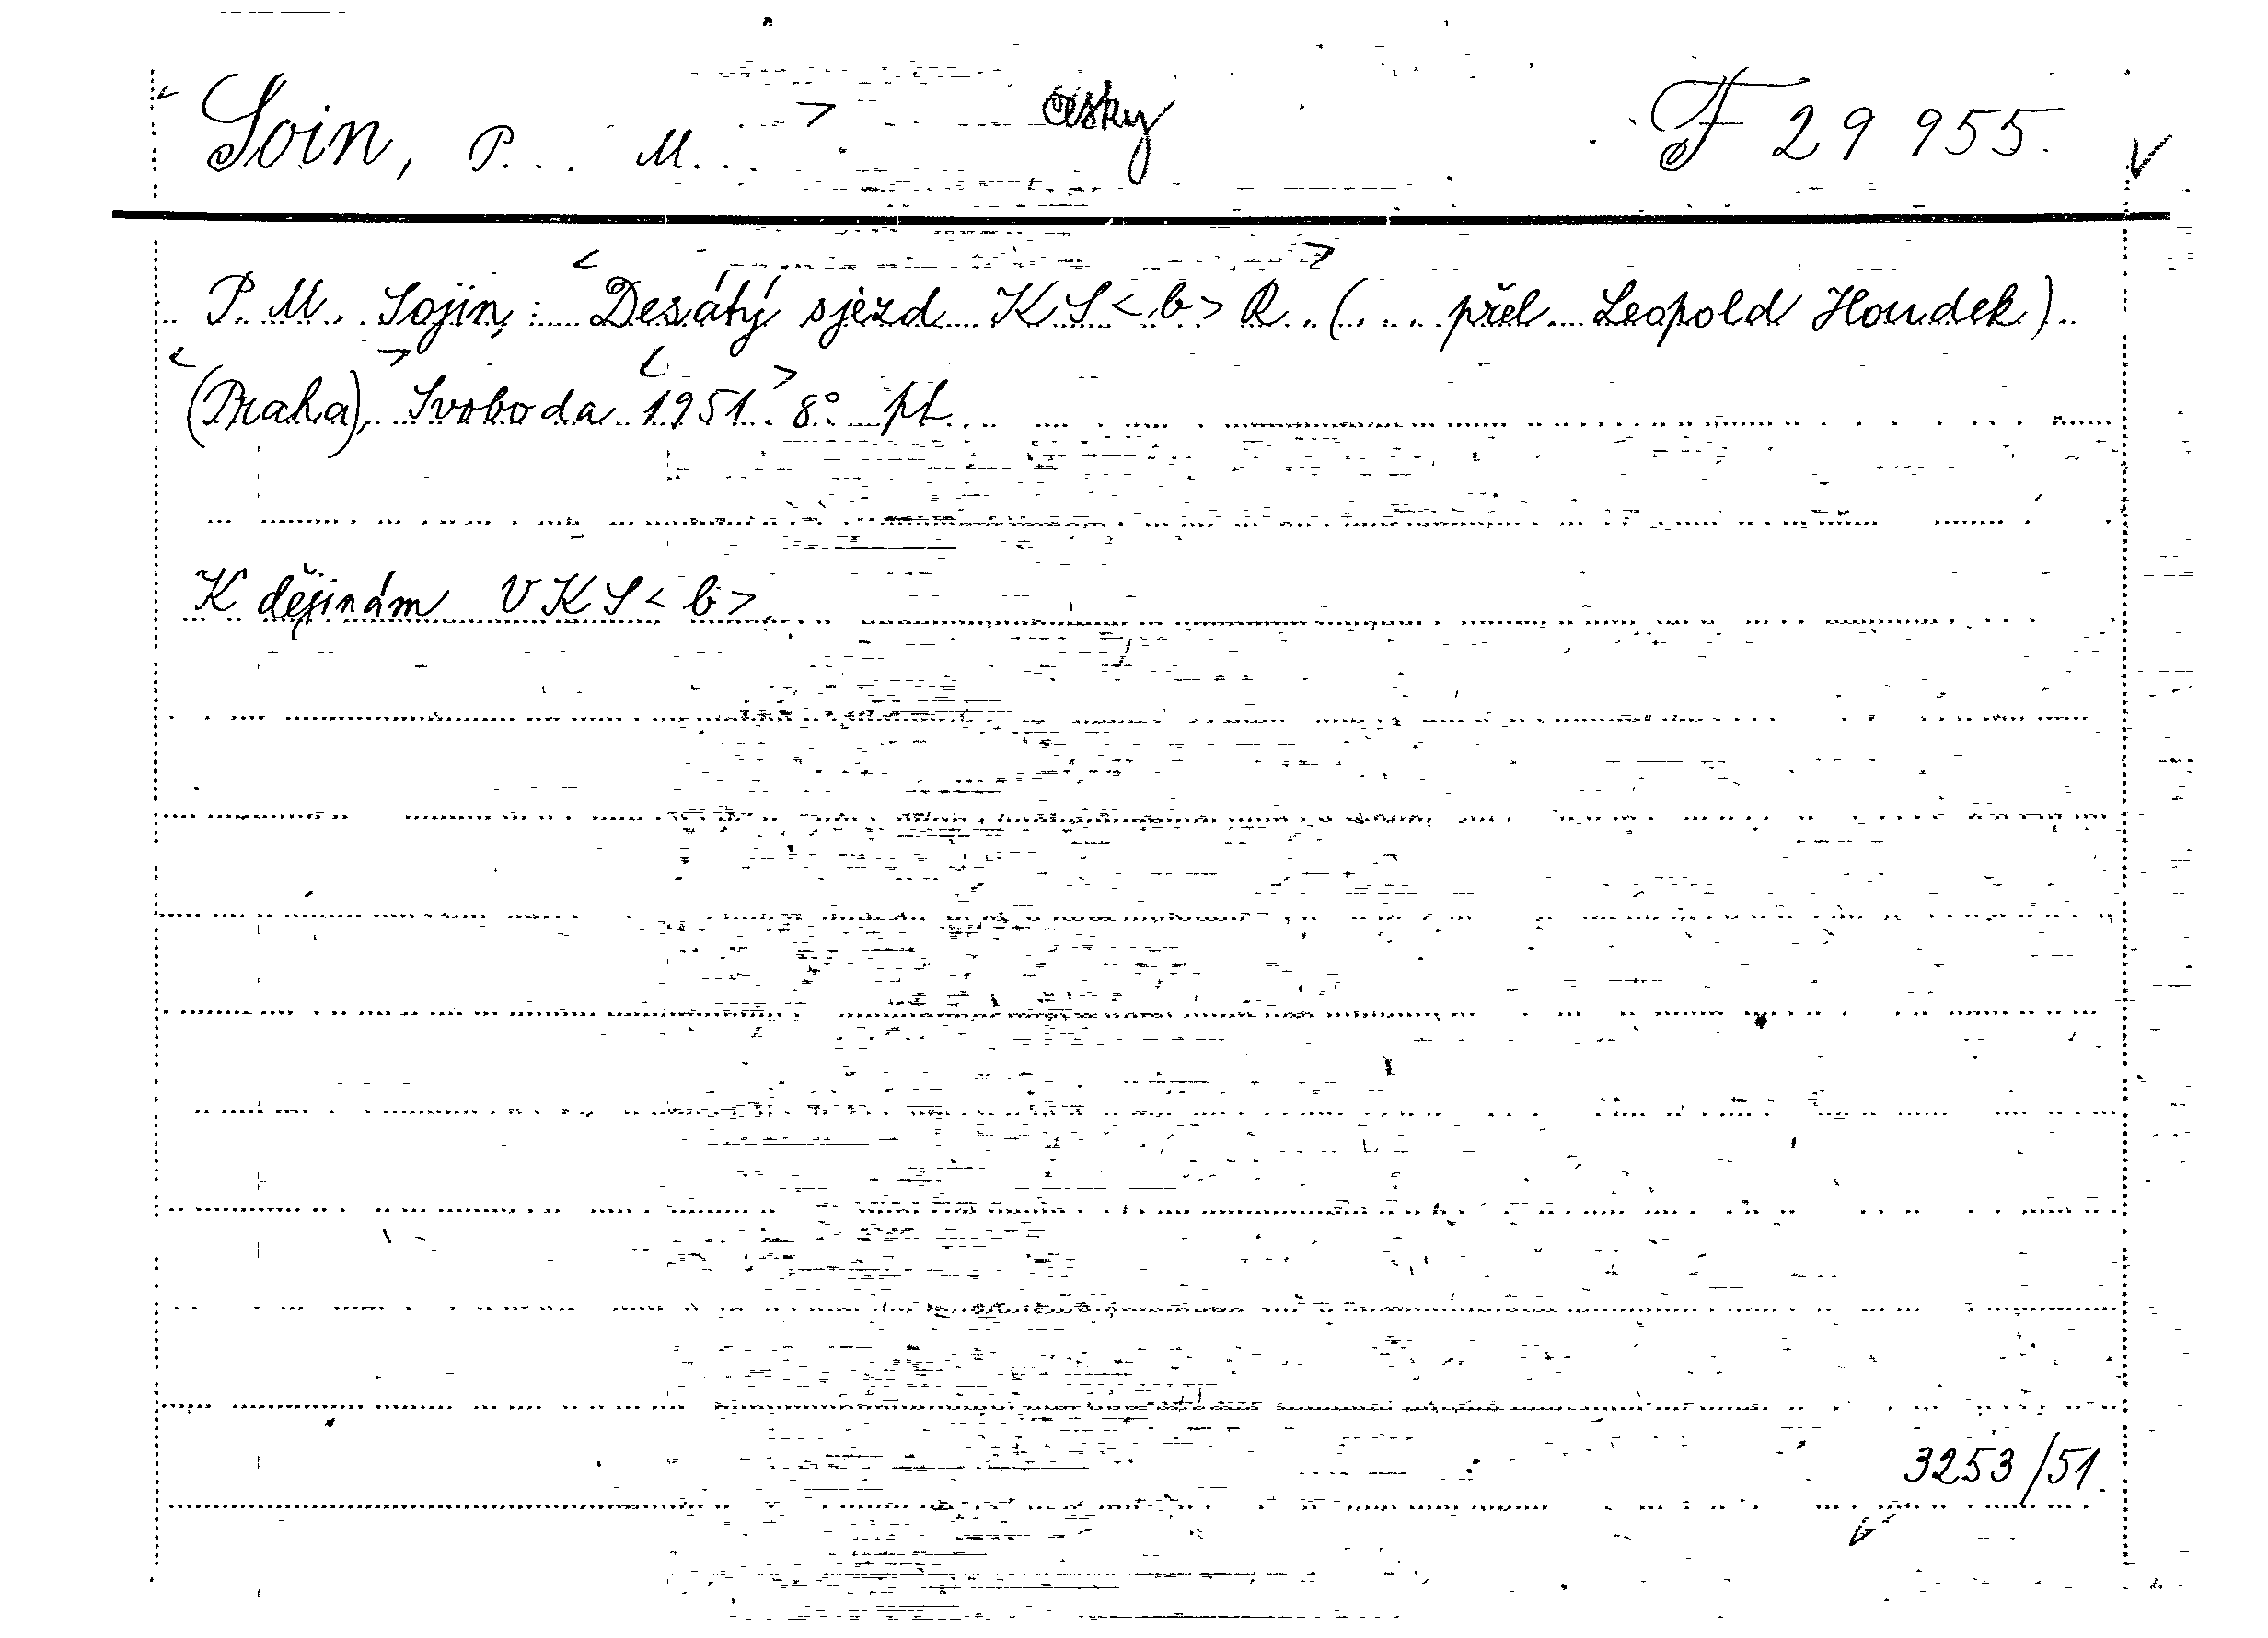 Soin, P... M... česky F 29 955.
P. M. Sojin: Desátý sjezd KS<b>R (... přel. Leopold Houdek)
(Praha), Svoboda 1951. 8° pt.
K dějinám VKS<b>
3253/51.